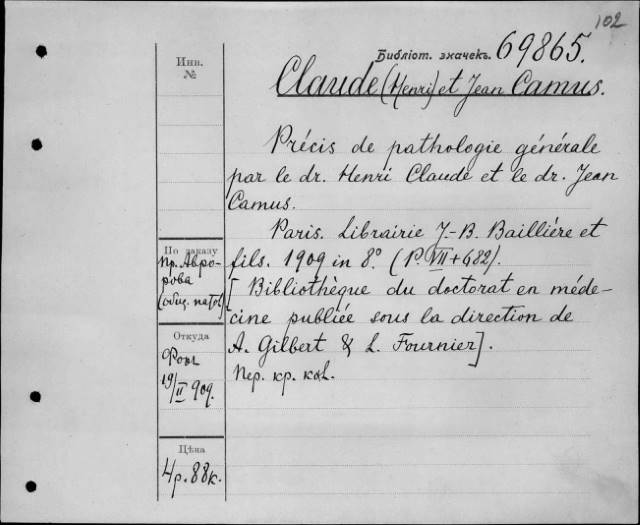 102
Библіот. значекъ. 69865.
Claude (Henri) et Jean Camus.
Инв.
№
Précis de pathologie générale
par le dr. Henri Claude et le dr. Jean
Camus.
Paris. Librairie J.-B. Baillière et
fils. 1909 in 8º. (P. VII+682).
[Bibliothèque du doctorat en méde-
cine publiée sous la direction de
A. Gilbert & L. Fournier].
Пер. кр. кал.
По заказу
пр. Авро-
рова
(общ. патол)
Откуда
Фокъ
19/II 909.
Цѣна
4р. 88к.